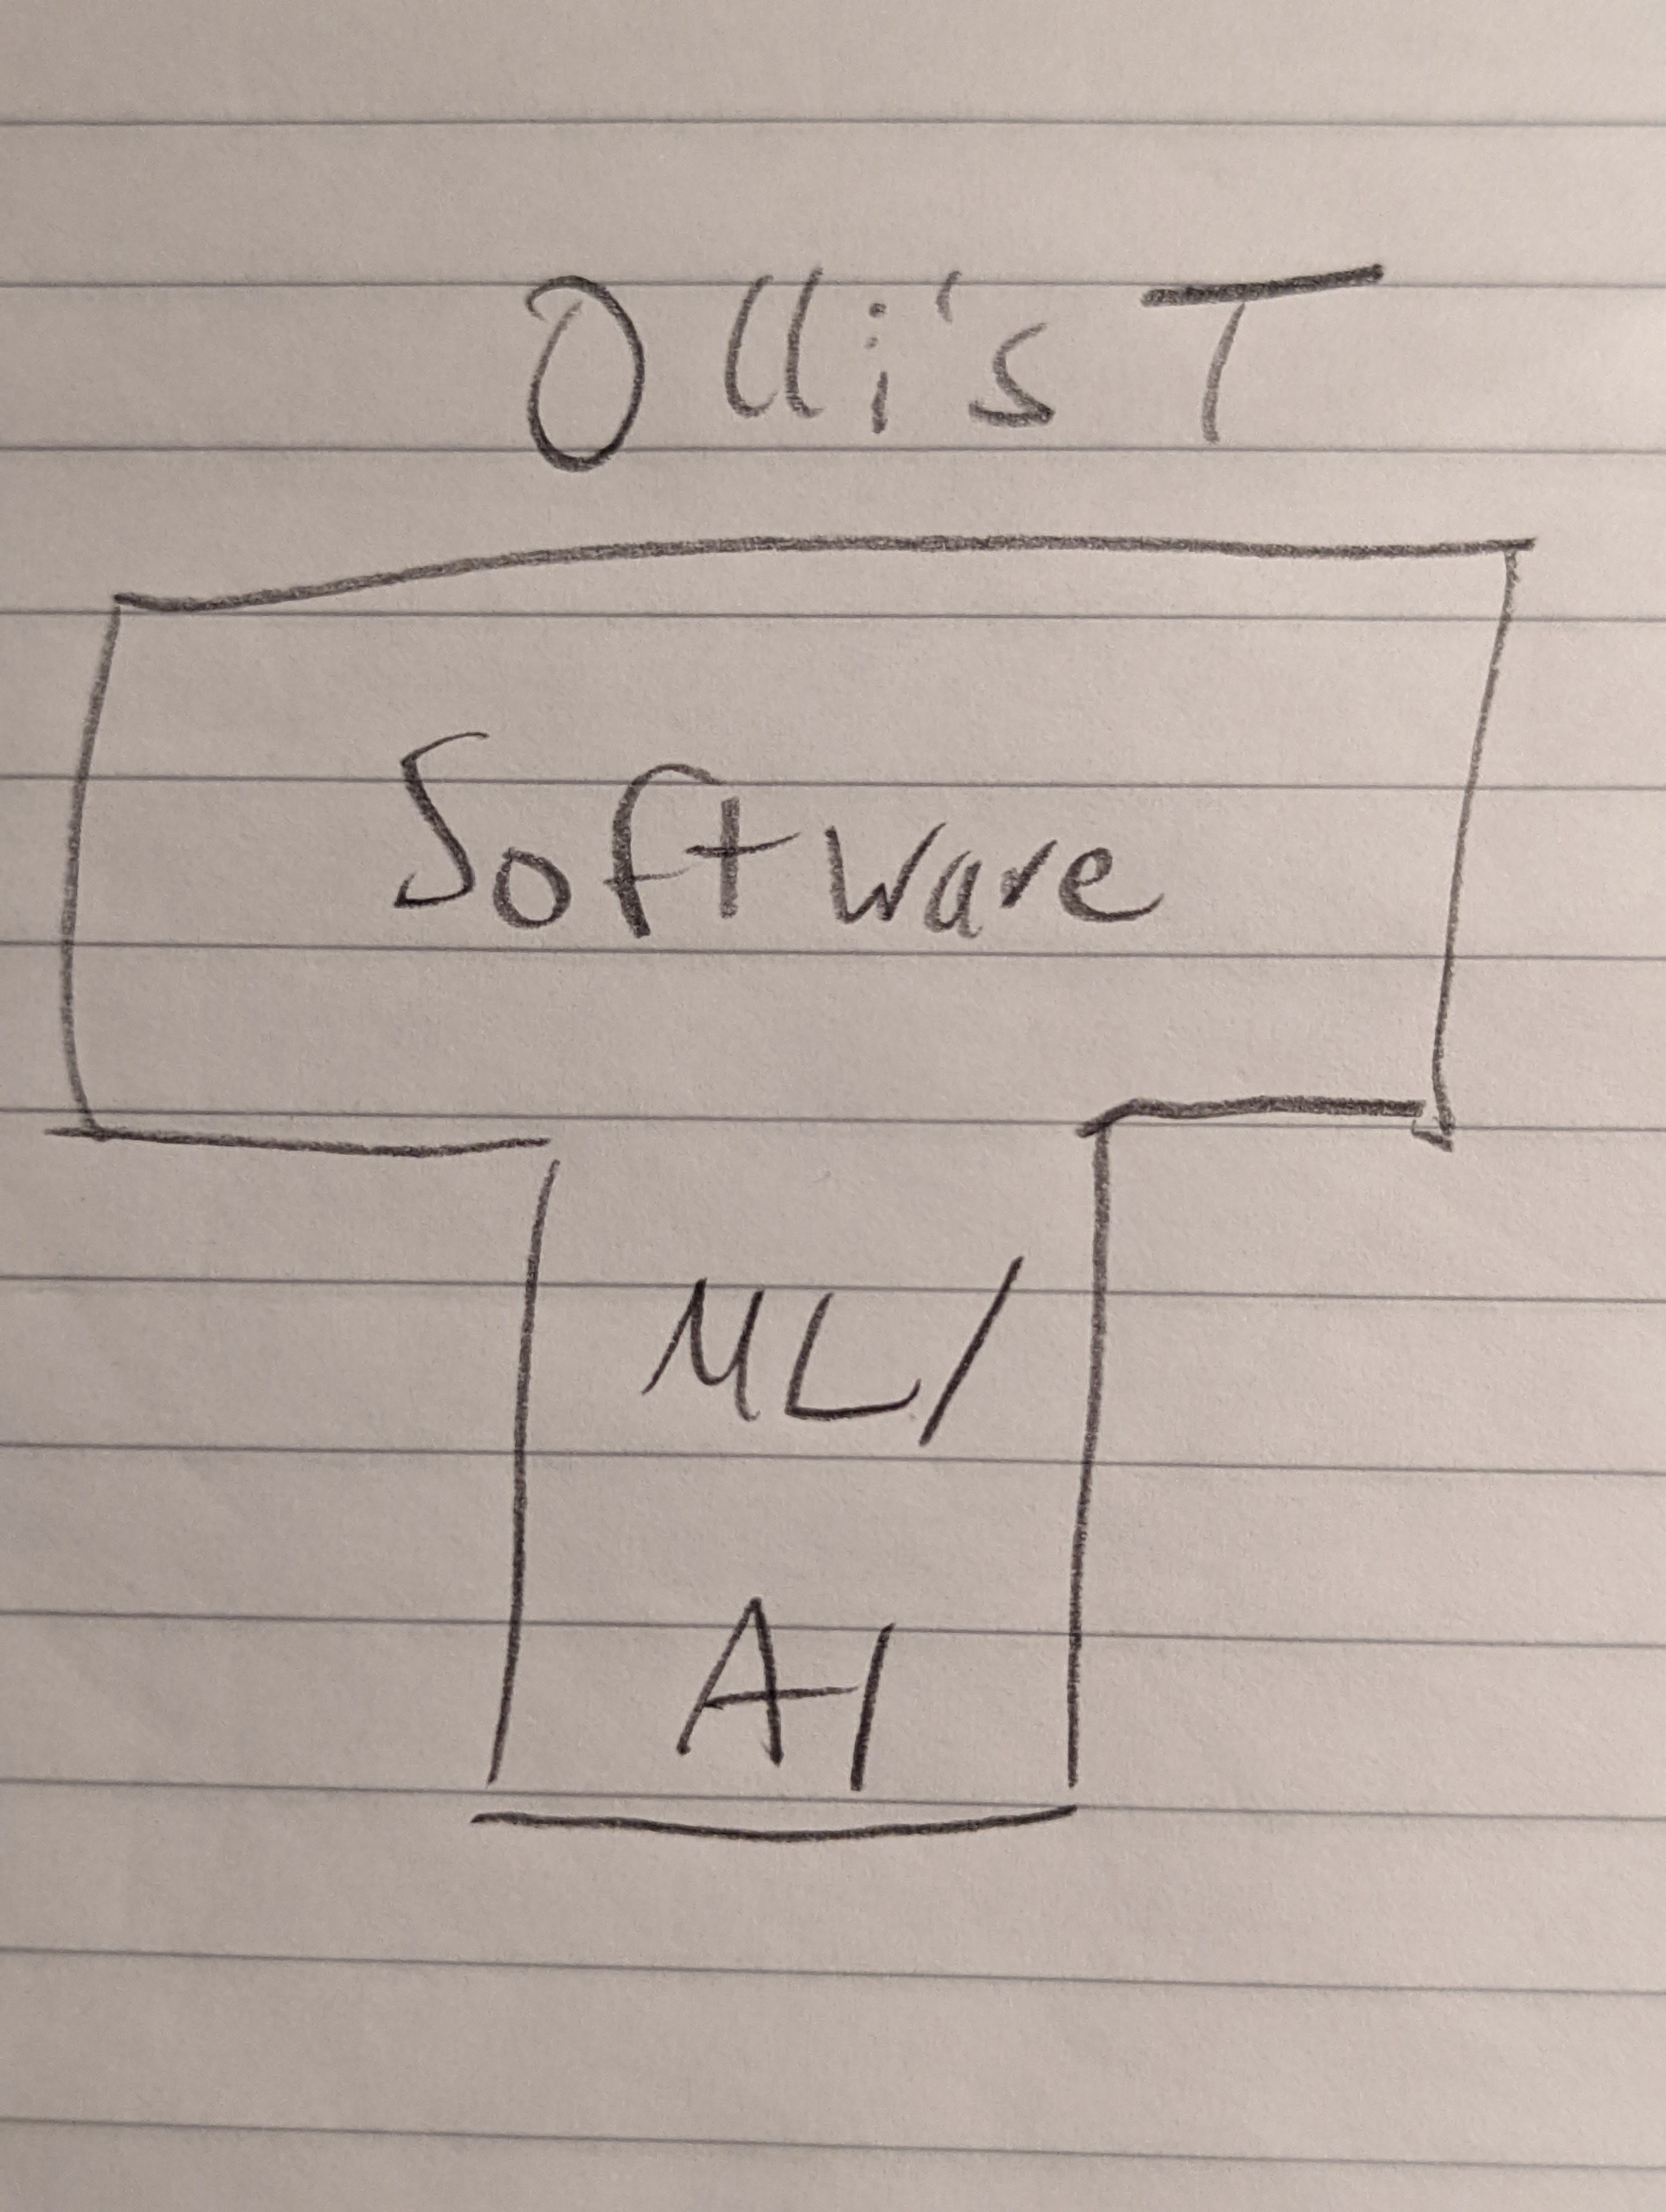 Olli's T
Software
ML/
AI